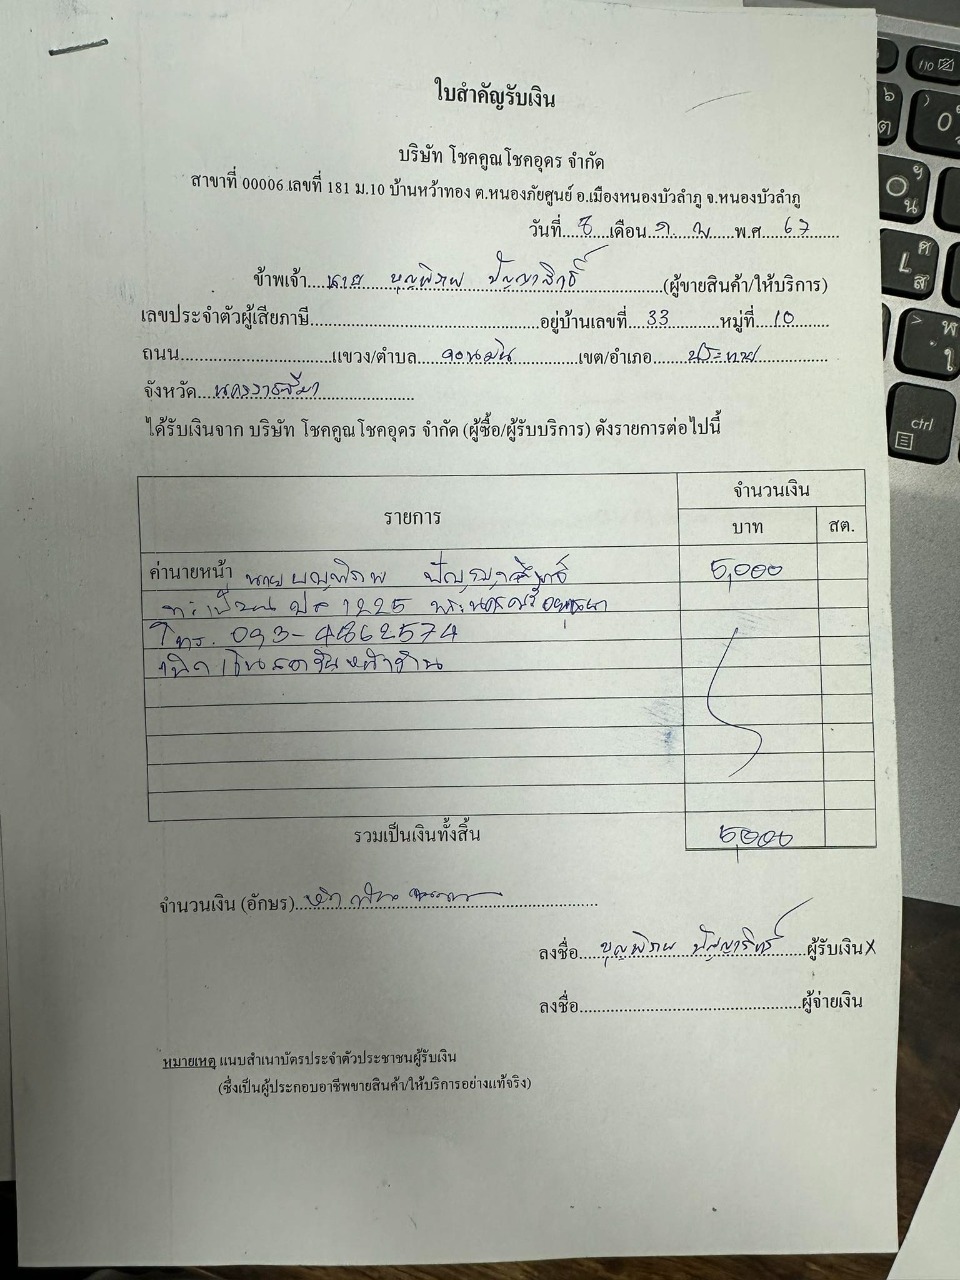 ใบสำคัญรับเงิน
บริษัท โชคคูณโชคอุดร จำกัด
สาขาที่ 00006 เลขที่ 181 ม.10 บ้านหว้าทอง ต.หนองภัยศูนย์ อ.เมืองหนองบัวลำภู จ.หนองบัวลำภู
วันที่.....8.....เดือน..ก.พ......พ.ศ.....67......
ข้าพเจ้า....นาย บุญพิภพ ปัญญาสิทธิ์..............(ผู้ขายสินค้า/ให้บริการ)
เลขประจำตัวผู้เสียภาษี..........................................อยู่บ้านเลขที่....33..........หมู่ที่....10........
ถนน...............................แขวง/ตำบล....ดอนมัน..............เขต/อำเภอ.......ประทาย..............
จังหวัด....นครราชสีมา...................
ได้รับเงินจาก บริษัท โชคคูณโชคอุดร จำกัด (ผู้ซื้อ/ผู้รับบริการ) ดังรายการต่อไปนี้
รายการ จำนวนเงิน
บาท สต.
ค่านายหน้า นายบุญพิภพ ปัญญาสิทธิ์ 5,000
ทะเบียน 1225 พระนครศรีอยุธยา
โทร. 093-4862574
หน้าร้าน
รวมเป็นเงินทั้งสิ้น 5,000
จำนวนเงิน (อักษร)....ห้าพันบาท..................
ลงชื่อ.....บุญพิภพ ปัญญาสิทธิ์.......ผู้รับเงิน X
ลงชื่อ.........................................ผู้จ่ายเงิน
หมายเหตุ แนบสำเนาบัตรประจำตัวประชาชนผู้รับเงิน
(ซึ่งเป็นผู้ประกอบอาชีพขายสินค้า/ให้บริการอย่างแท้จริง)
ctrl